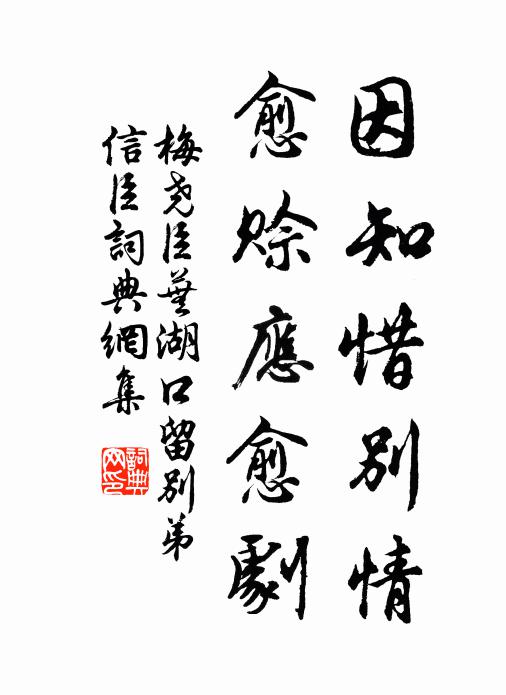 因知惜別情
愈賒應愈劇
梅堯臣蕪湖口留別弟
信臣詞典網集
詞典
网印